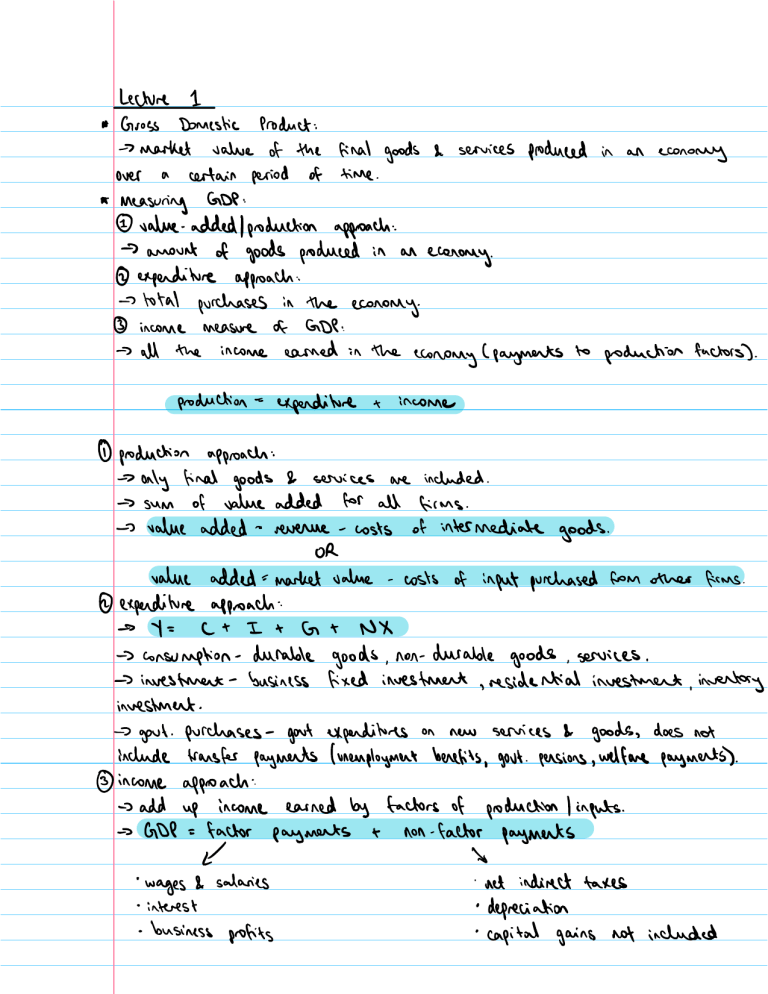 Lecture 1
* Gross Domestic Product:
→ market value of the final goods & services produced in an economy
over a certain period of time.
* Measuring GDP:
① value-added/production approach:
→ amount of goods produced in an economy.
② expenditure approach:
→ total purchases in the economy.
③ income measure of GDP:
→ all the income earned in the economy (payments to production factors).
production = expenditure + income
① production approach:
→ only final goods & services are included.
→ sum of value added for all firms.
→ value added = revenue - costs of intermediate goods.
OR
value added = market value - costs of input purchased from other firms.
② expenditure approach:
→ Y = C + I + G + NX
→ consumption - durable goods, non-durable goods, services.
→ investment - business fixed investment, residential investment, inventory
investment.
→ govt. purchases - govt expenditures on new services & goods, does not
include transfer payments (unemployment benefits, govt. pensions, welfare payments).
③ income approach:
→ add up income earned by factors of production/inputs.
→ GDP = factor payments + non-factor payments
· wages & salaries
· interest
· business profits
· net indirect taxes
· depreciation
· capital gains not included